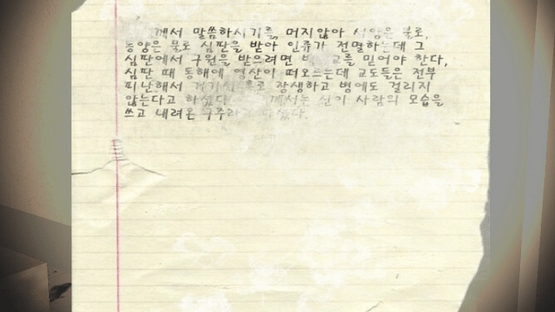 께서 말씀하시기를, 머지않아 서양은 불로,
동양은 불로 심판을 받아 인류가 전멸하는데 그
심판에서 구원을 받으려면 교를 믿어야 한다,
심판 때 동해에 영산이 떠오르는데 교도들은 전부
피난해서 거기서 장생하고 병에도 걸리지
않는다고 하셨다 께서는 신이 사람의 모습을
쓰고 내려온 구주라고